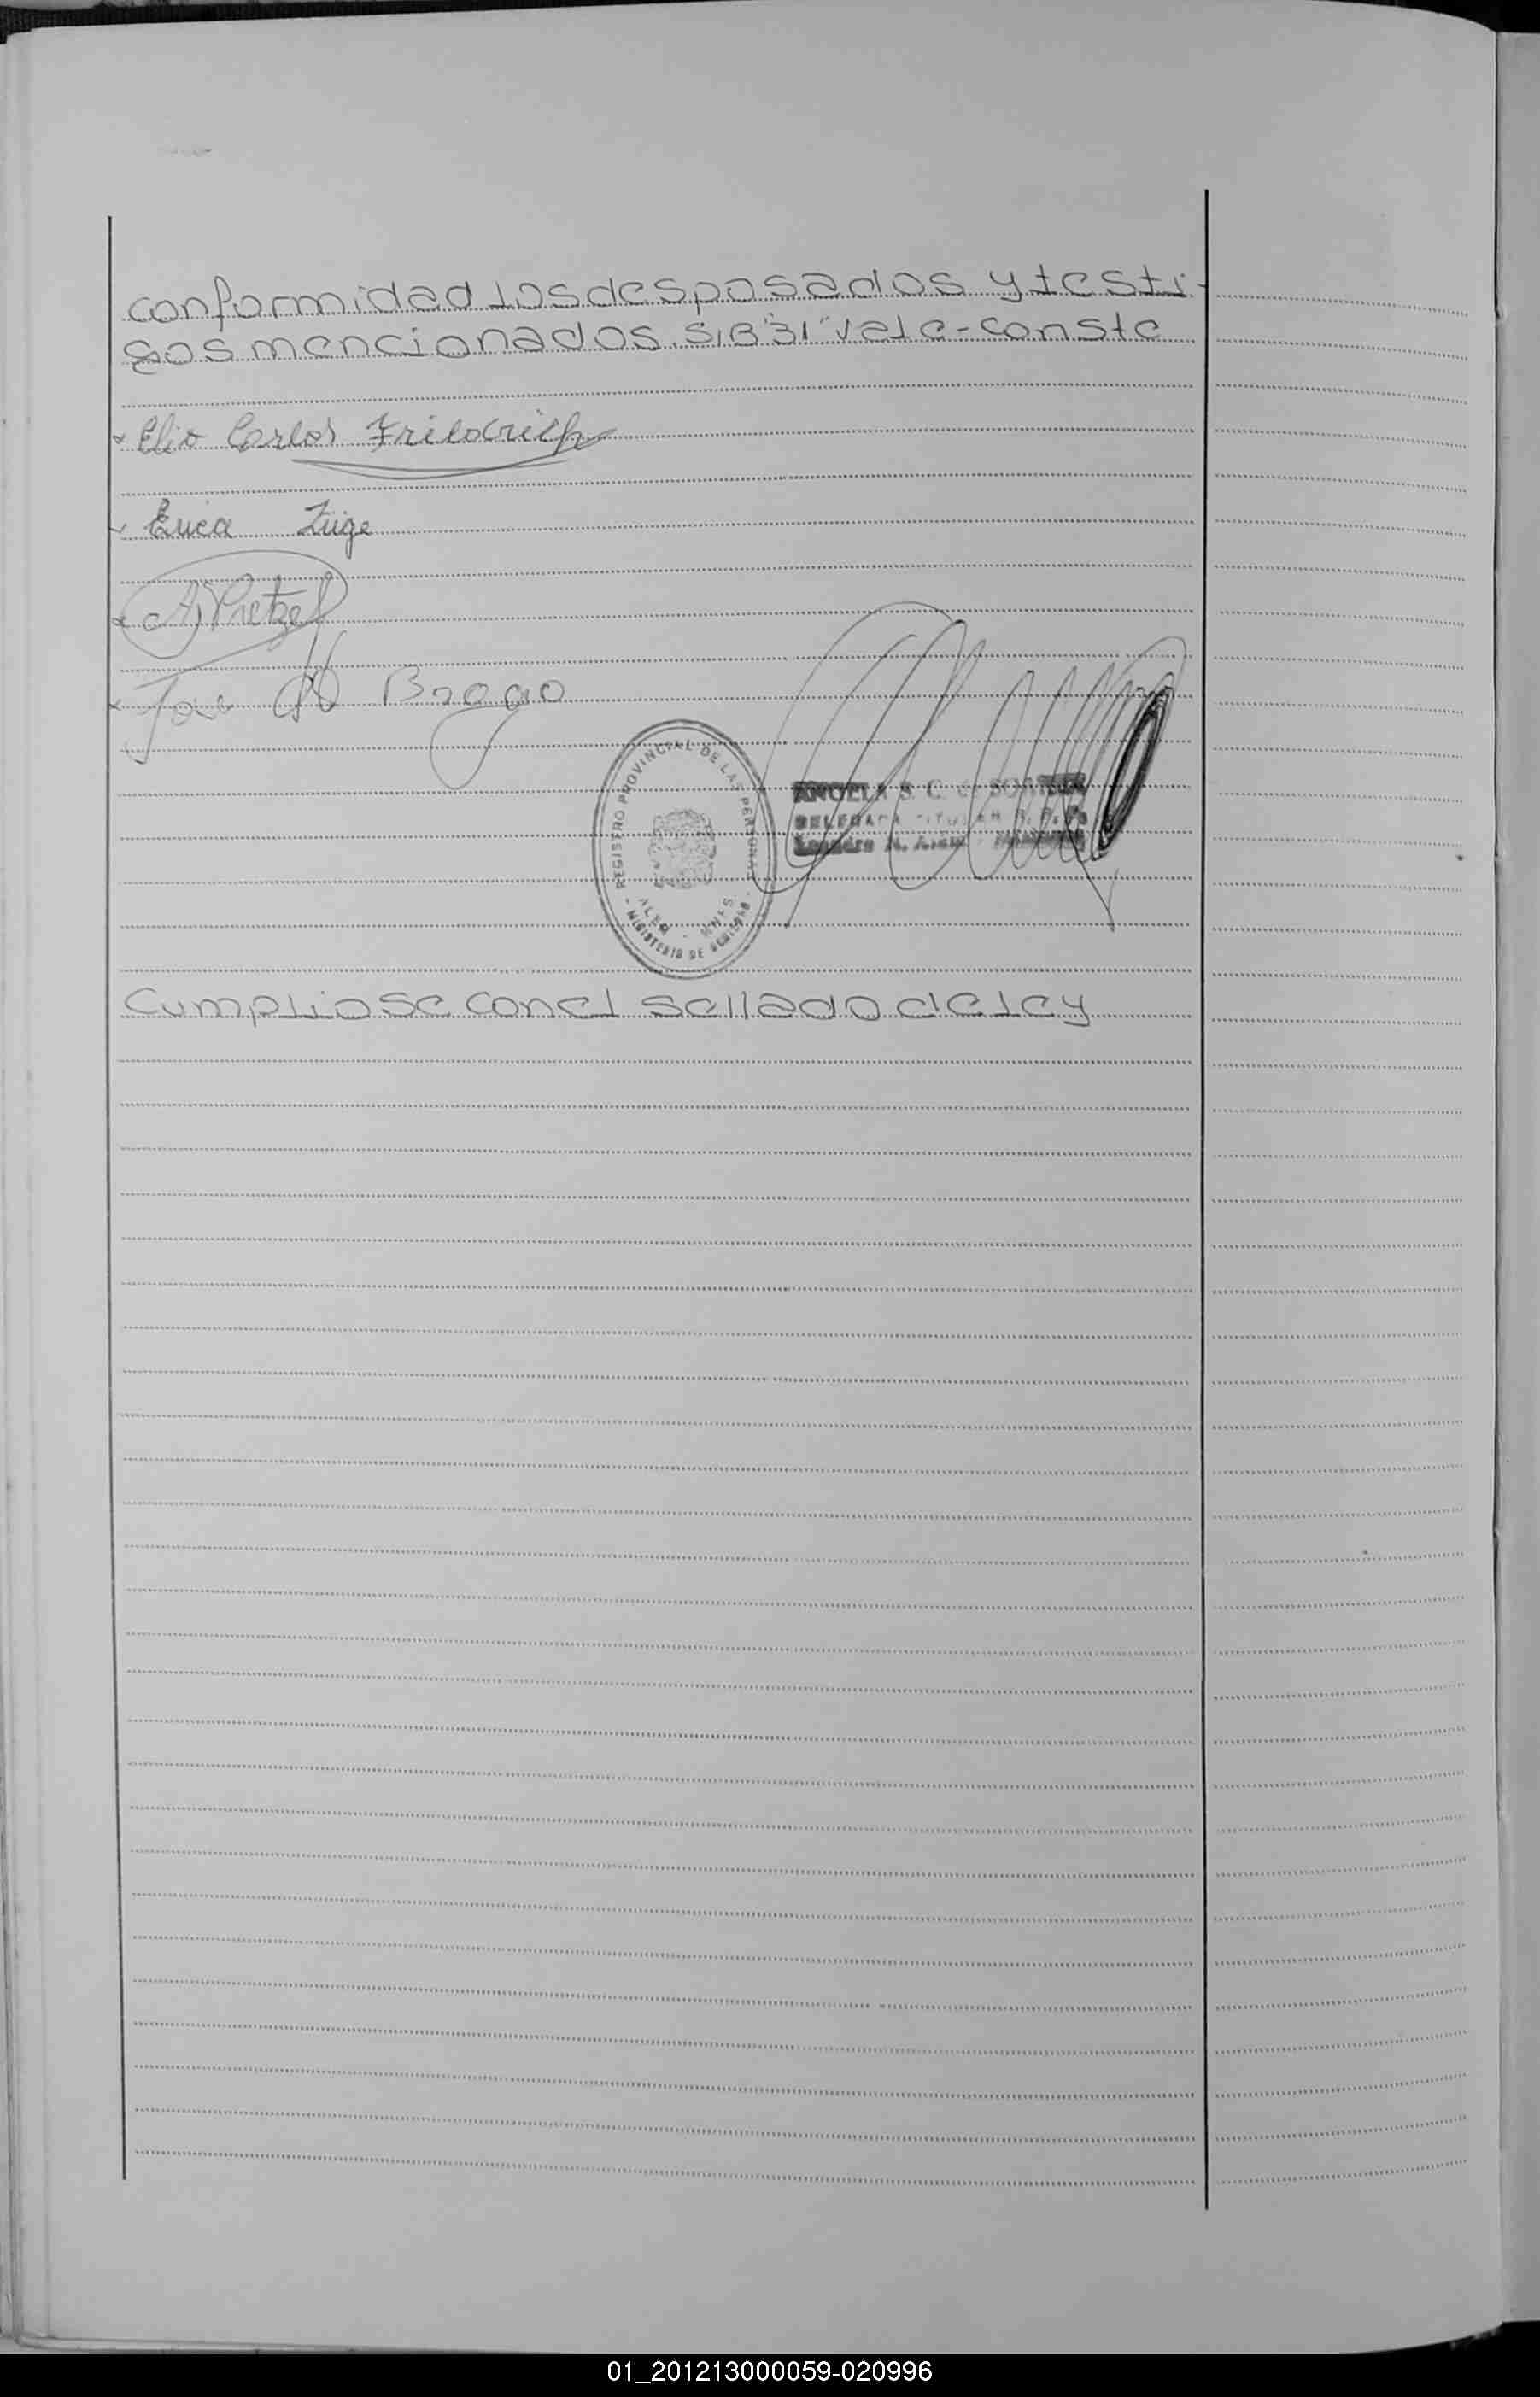 conformidad los desposados y testi-
gos mencionados. S/B "31" vale - conste
Elio Carlos Friedrich
Erica Züge
A. Pretzel
Jose A Brago
REGISTRO PROVINCIAL DE LAS PERSONAS
ALEM - MNES
MINISTERIO DE GOBIERNO
ANGELA S. C. de
DELEGADA TITULAR R. P. P.
Leandro N. Alem - Misiones
Cumpliose con el sellado de ley
01_201213000059-020996